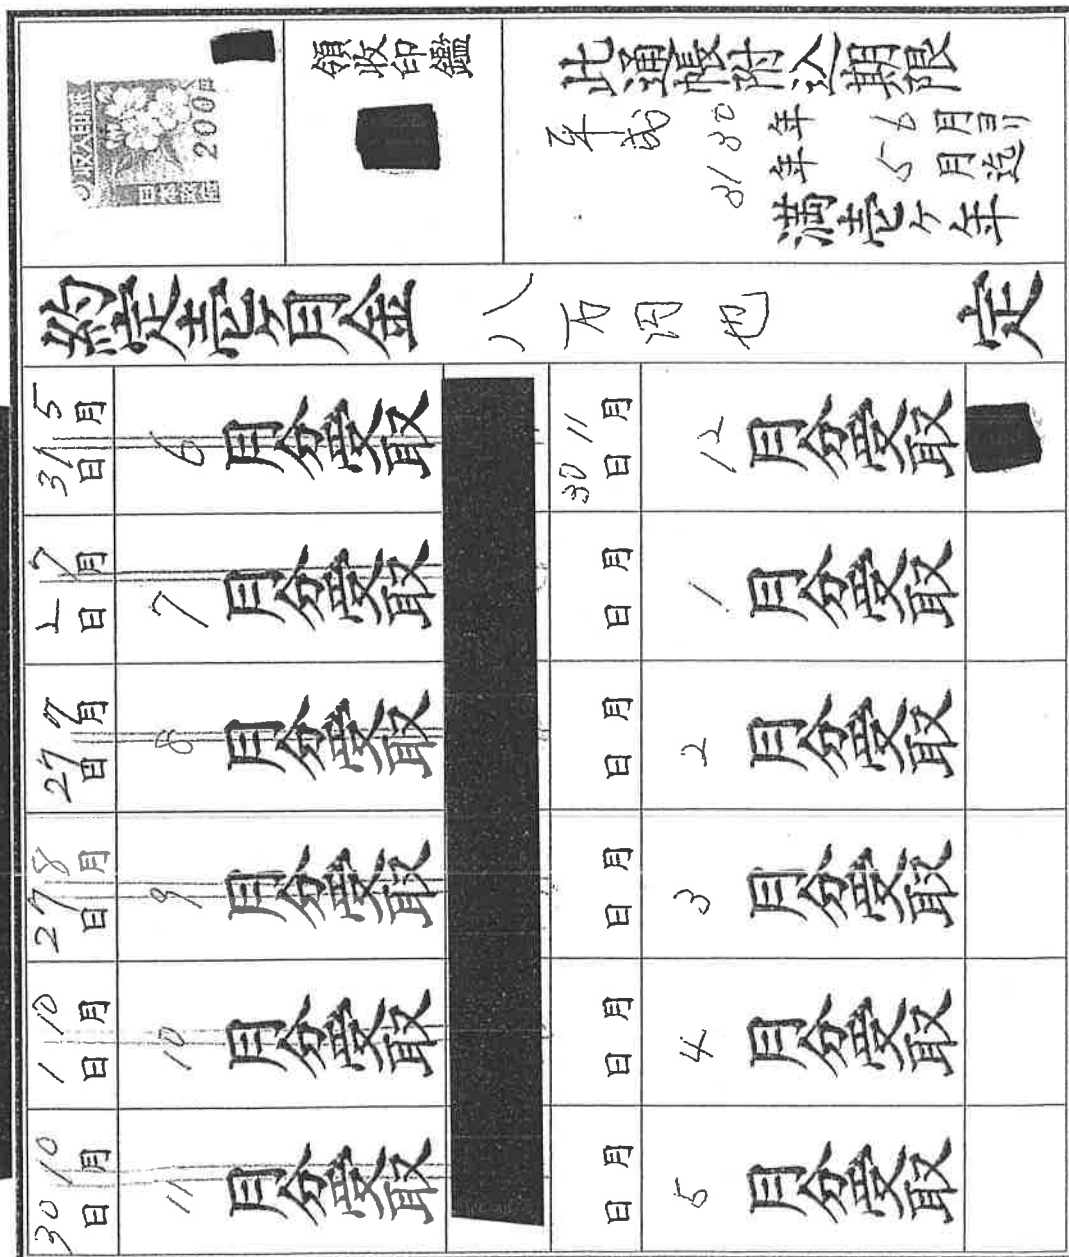 此通帳附込期限
平成 30年 6月ヨリ
31年 5月迄
満壱ヶ年
領收印鑑
収入印紙
200円
日本政府
約定壱ヶ月金 八万円也 定
5月31日 6月分受取
7月1日 7月分受取
7月27日 8月分受取
8月27日 9月分受取
10月1日 10月分受取
10月30日 11月分受取
11月30日 12月分受取
月 日 1月分受取
月 日 2月分受取
月 日 3月分受取
月 日 4月分受取
月 日 5月分受取